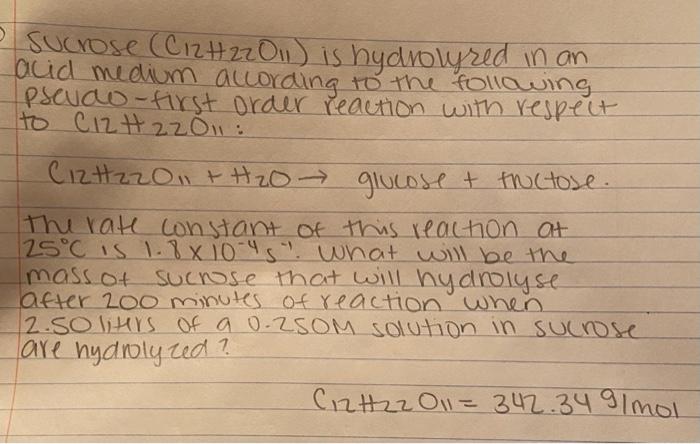 Sucrose (C12H22O11) is hydrolyzed in an
acid medium according to the following
pseudo-first order reaction with respect
to C12H22O11:
C12H22O11 + H2O → glucose + fructose.
The rate constant of this reaction at
25°C is 1.8x10-4s-1. What will be the
mass of sucrose that will hydrolyse
after 200 minutes of reaction when
2.50 liters of a 0.250M solution in sucrose
are hydrolyzed?
C12H22O11 = 342.34 g/mol